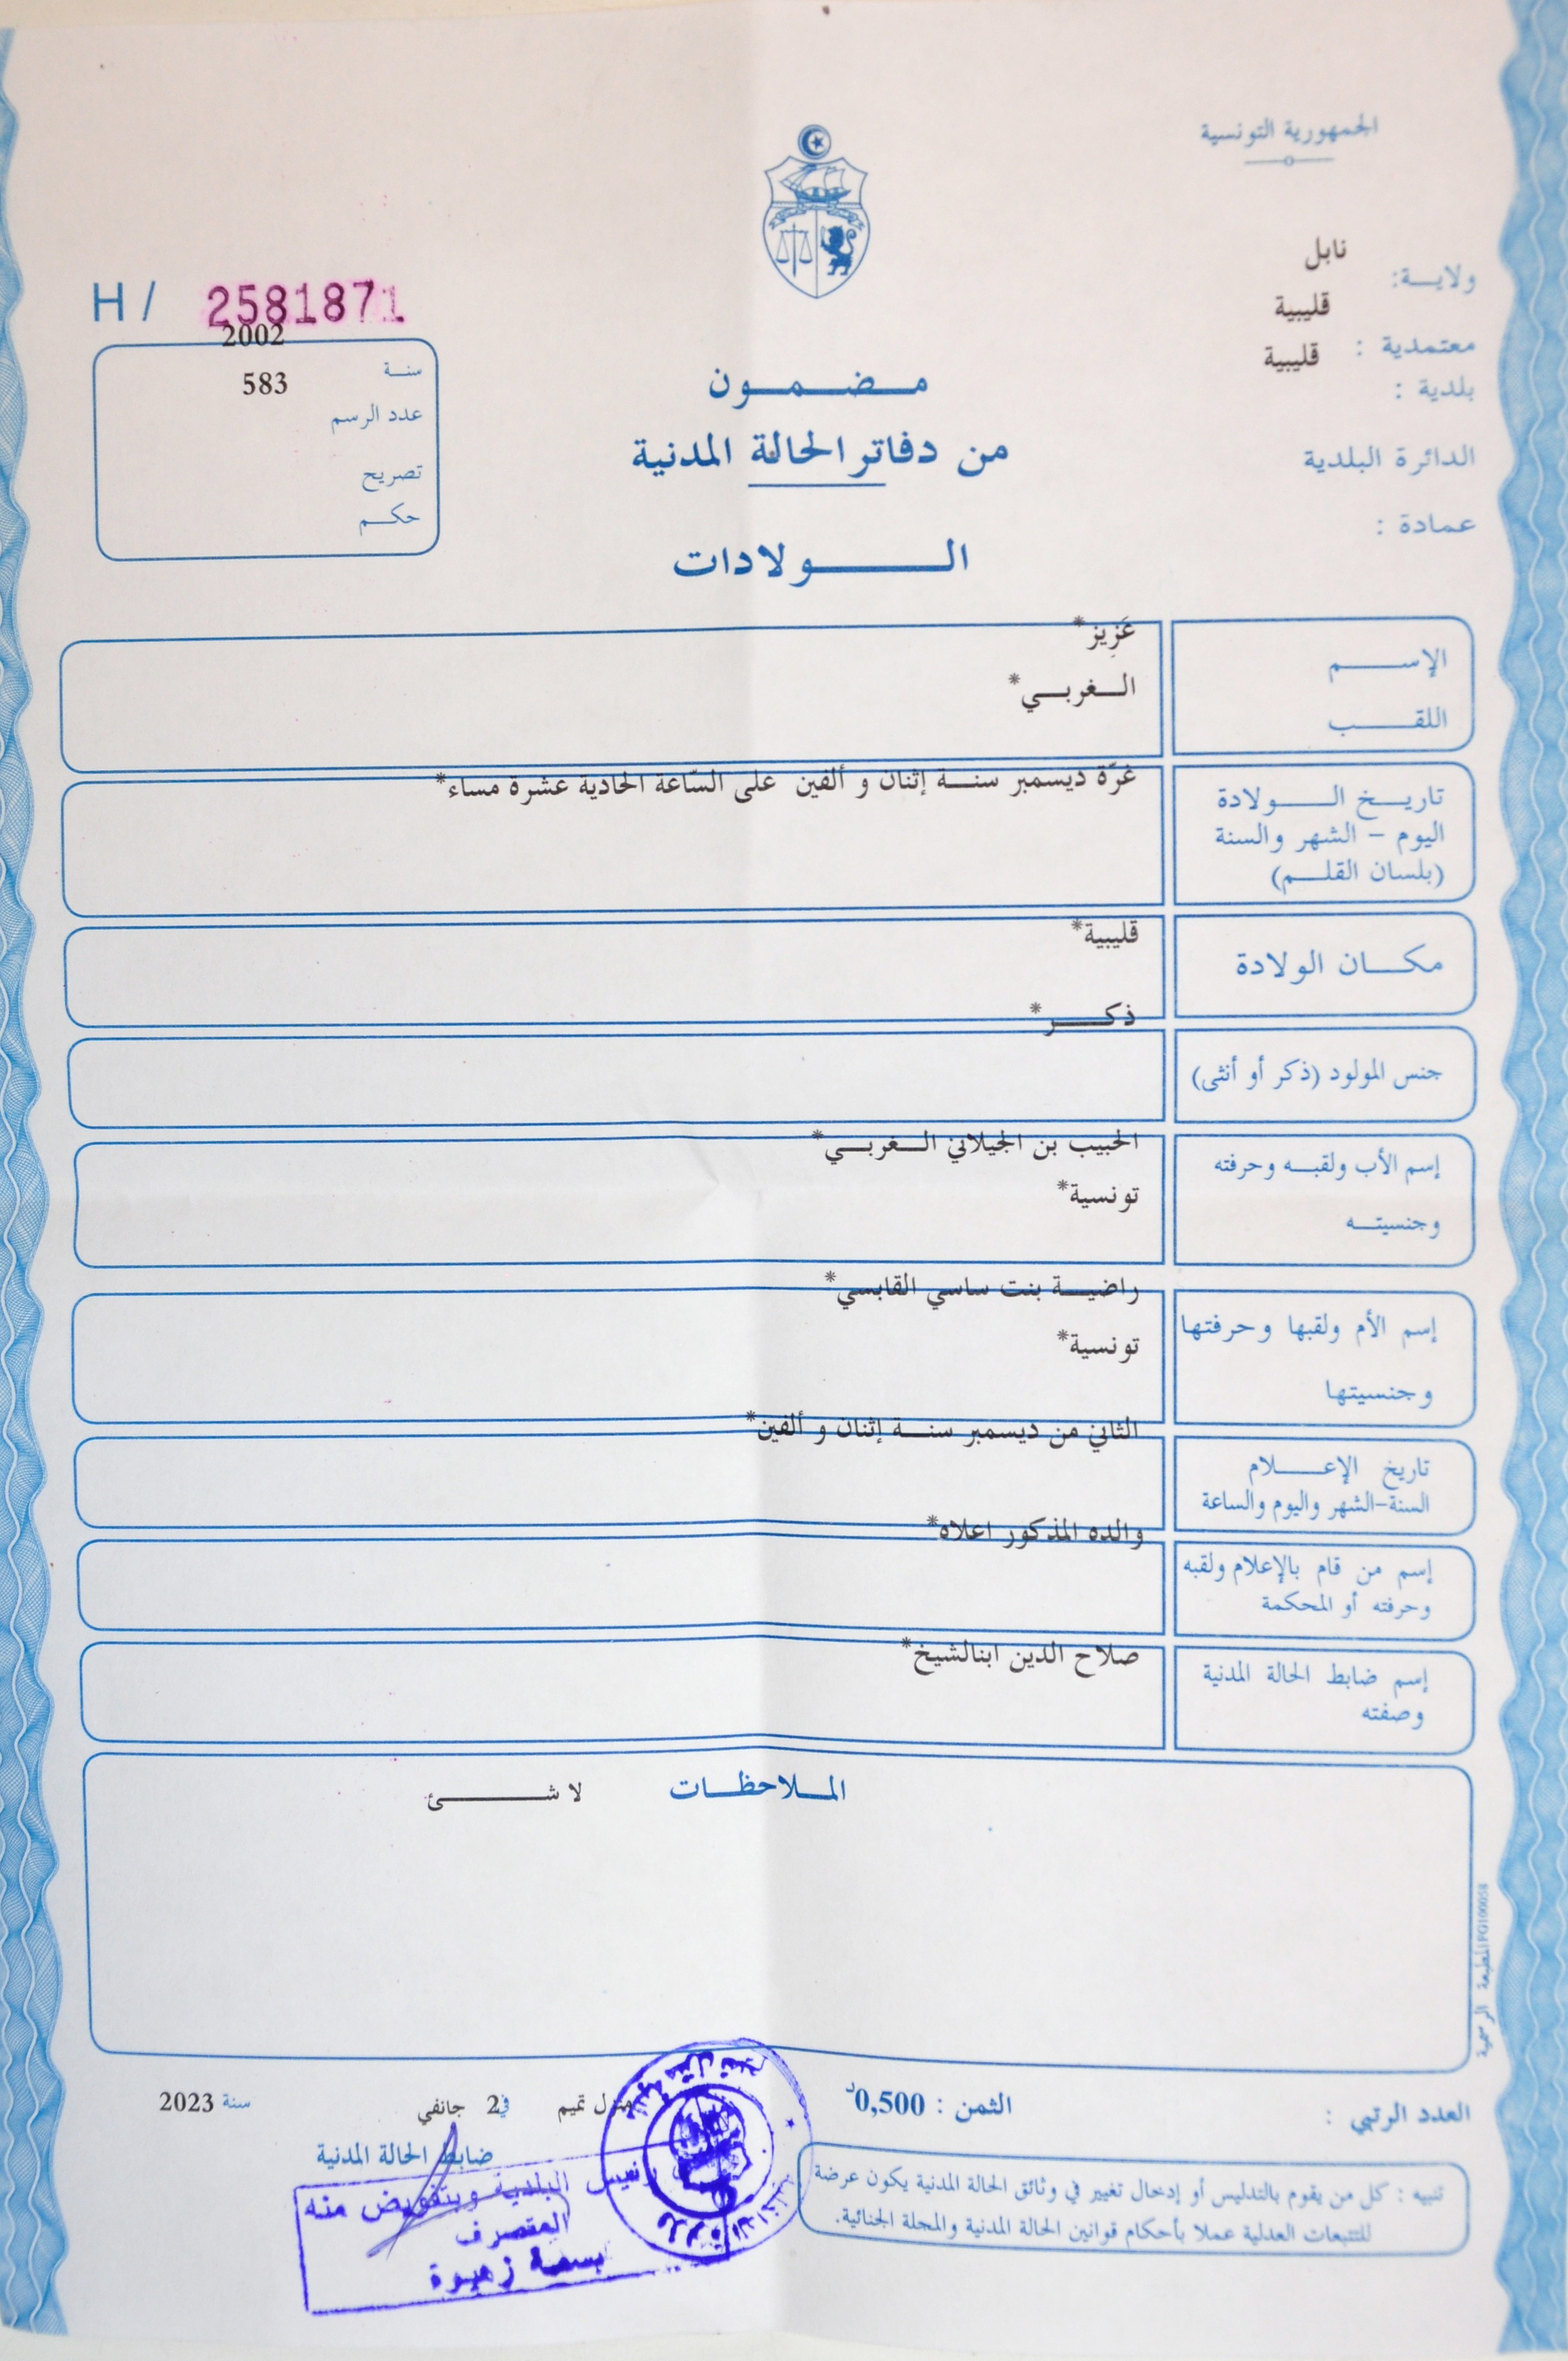 الجمهورية التونسية
ولايـــة: نابل
معتمدية : قليبية
بلدية : قليبية
الدائرة البلدية
عمادة :
H / 2581871
سنــة 2002
عدد الرسم 583
تصريح
حكــم
مــضــمــون
من دفاتر الحالة المدنية
الــــولادات
الإســـــم عَزِيز*
اللقـــــب الــغربــي*
تاريــخ الــــولادة غرّة ديسمبر سنــة إثنان و ألفين على السّاعة الحادية عشرة مساء*
اليوم – الشهر والسنة
(بلسان القلــم)
مكــان الولادة قليبية*
جنس المولود (ذكر أو أنثى) ذكــــر*
إسم الأب ولقبــه وحرفته الحبيب بن الجيلاني الــغربــي*
وجنسيتــه تونسية*
إسم الأم ولقبها وحرفتها راضيــة بنت ساسي القابسي*
وجنسيتها تونسية*
تاريخ الإعــــلام الثاني من ديسمبر سنــة إثنان و ألفين*
السنة-الشهر واليوم والساعة
إسم من قام بالإعلام ولقبه والده المذكور اعلاه*
وحرفته أو المحكمة
إسم ضابط الحالة المدنية صلاح الدين ابنالشيخ*
وصفته
المــلاحظــات لا شـــــئ
المطبعة الرسمية FG100058
العدد الرتبي :
الثمن : 0,500د
منزل تميم في 2 جانفي سنة 2023
ضابط الحالة المدنية
رئيس البلدية وبتفويض منه
المتصرف
بسمة زهيوة
تنبيه : كل من يقوم بالتدليس أو إدخال تغيير في وثائق الحالة المدنية يكون عرضة
للتتبعات العدلية عملا بأحكام قوانين الحالة المدنية والمجلة الجنائية.